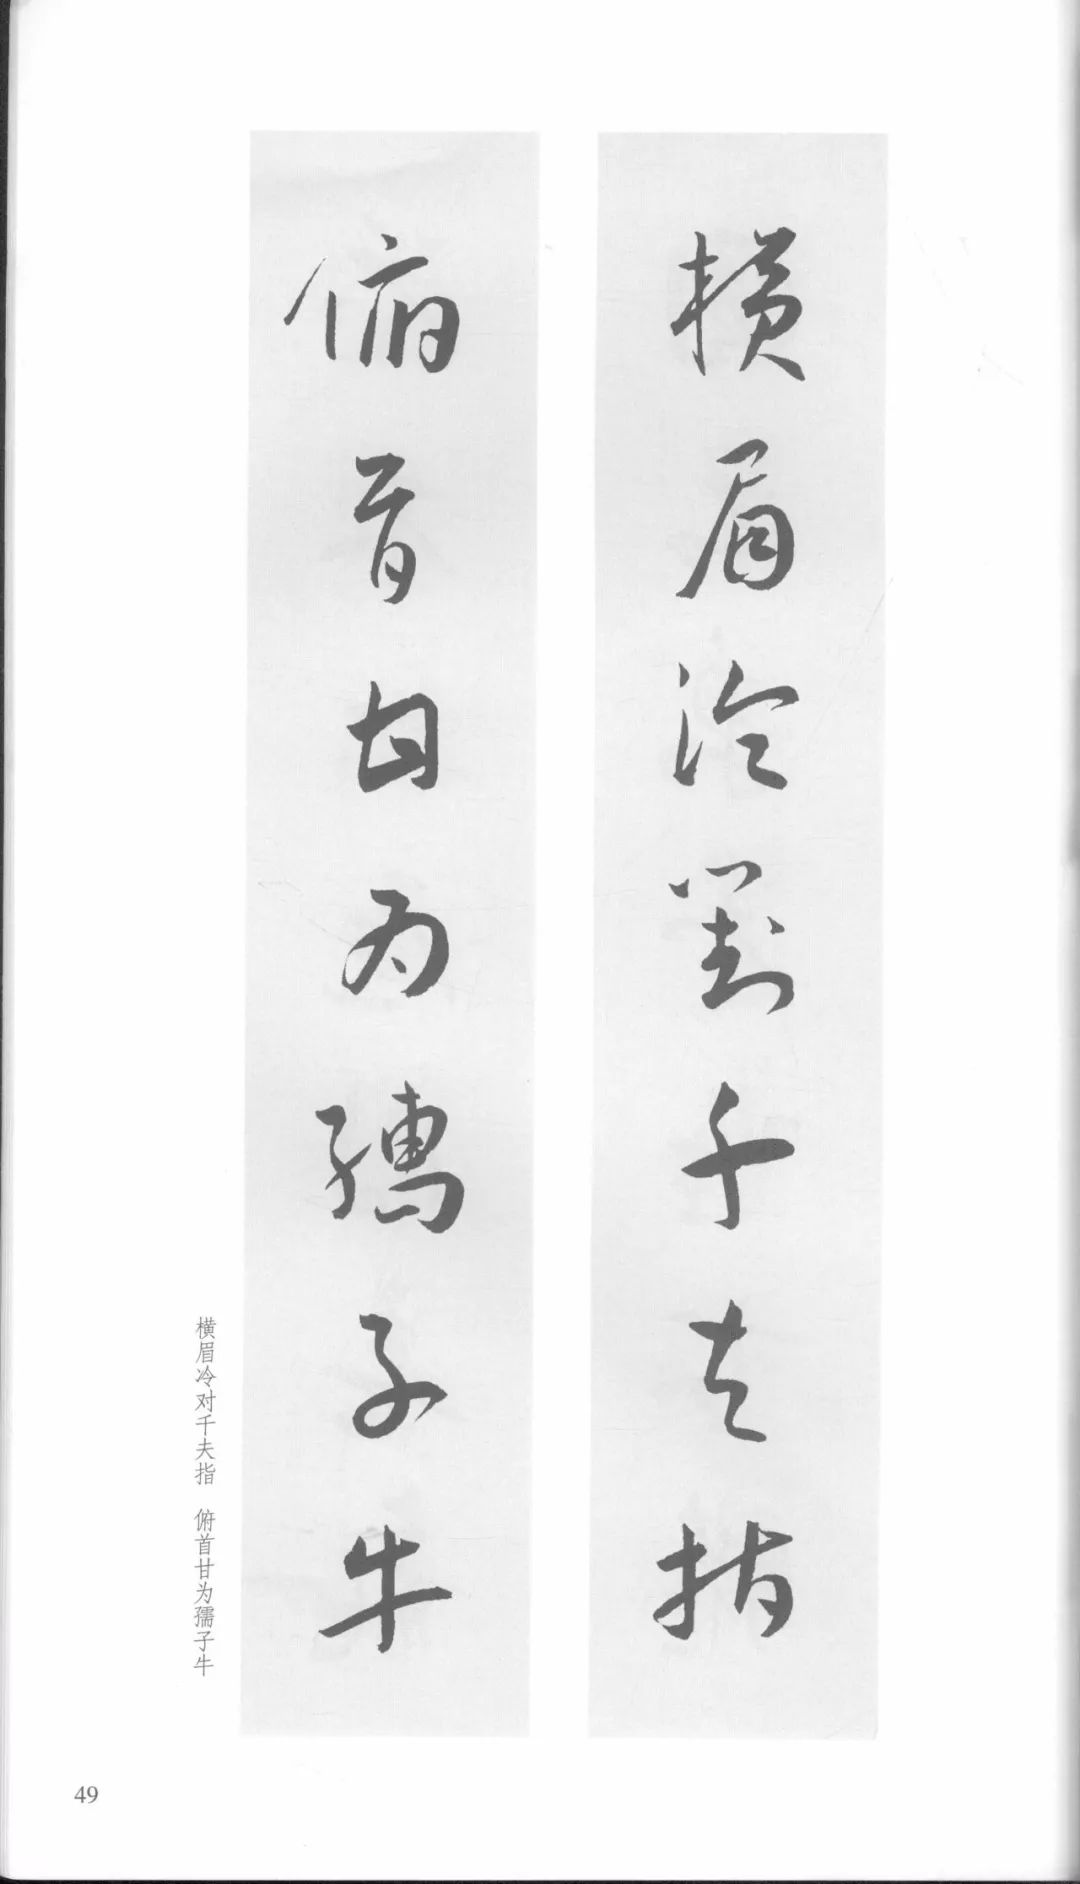 橫眉冷對千夫指
俯首甘为孺子牛
横眉冷对千夫指 俯首甘为孺子牛
49